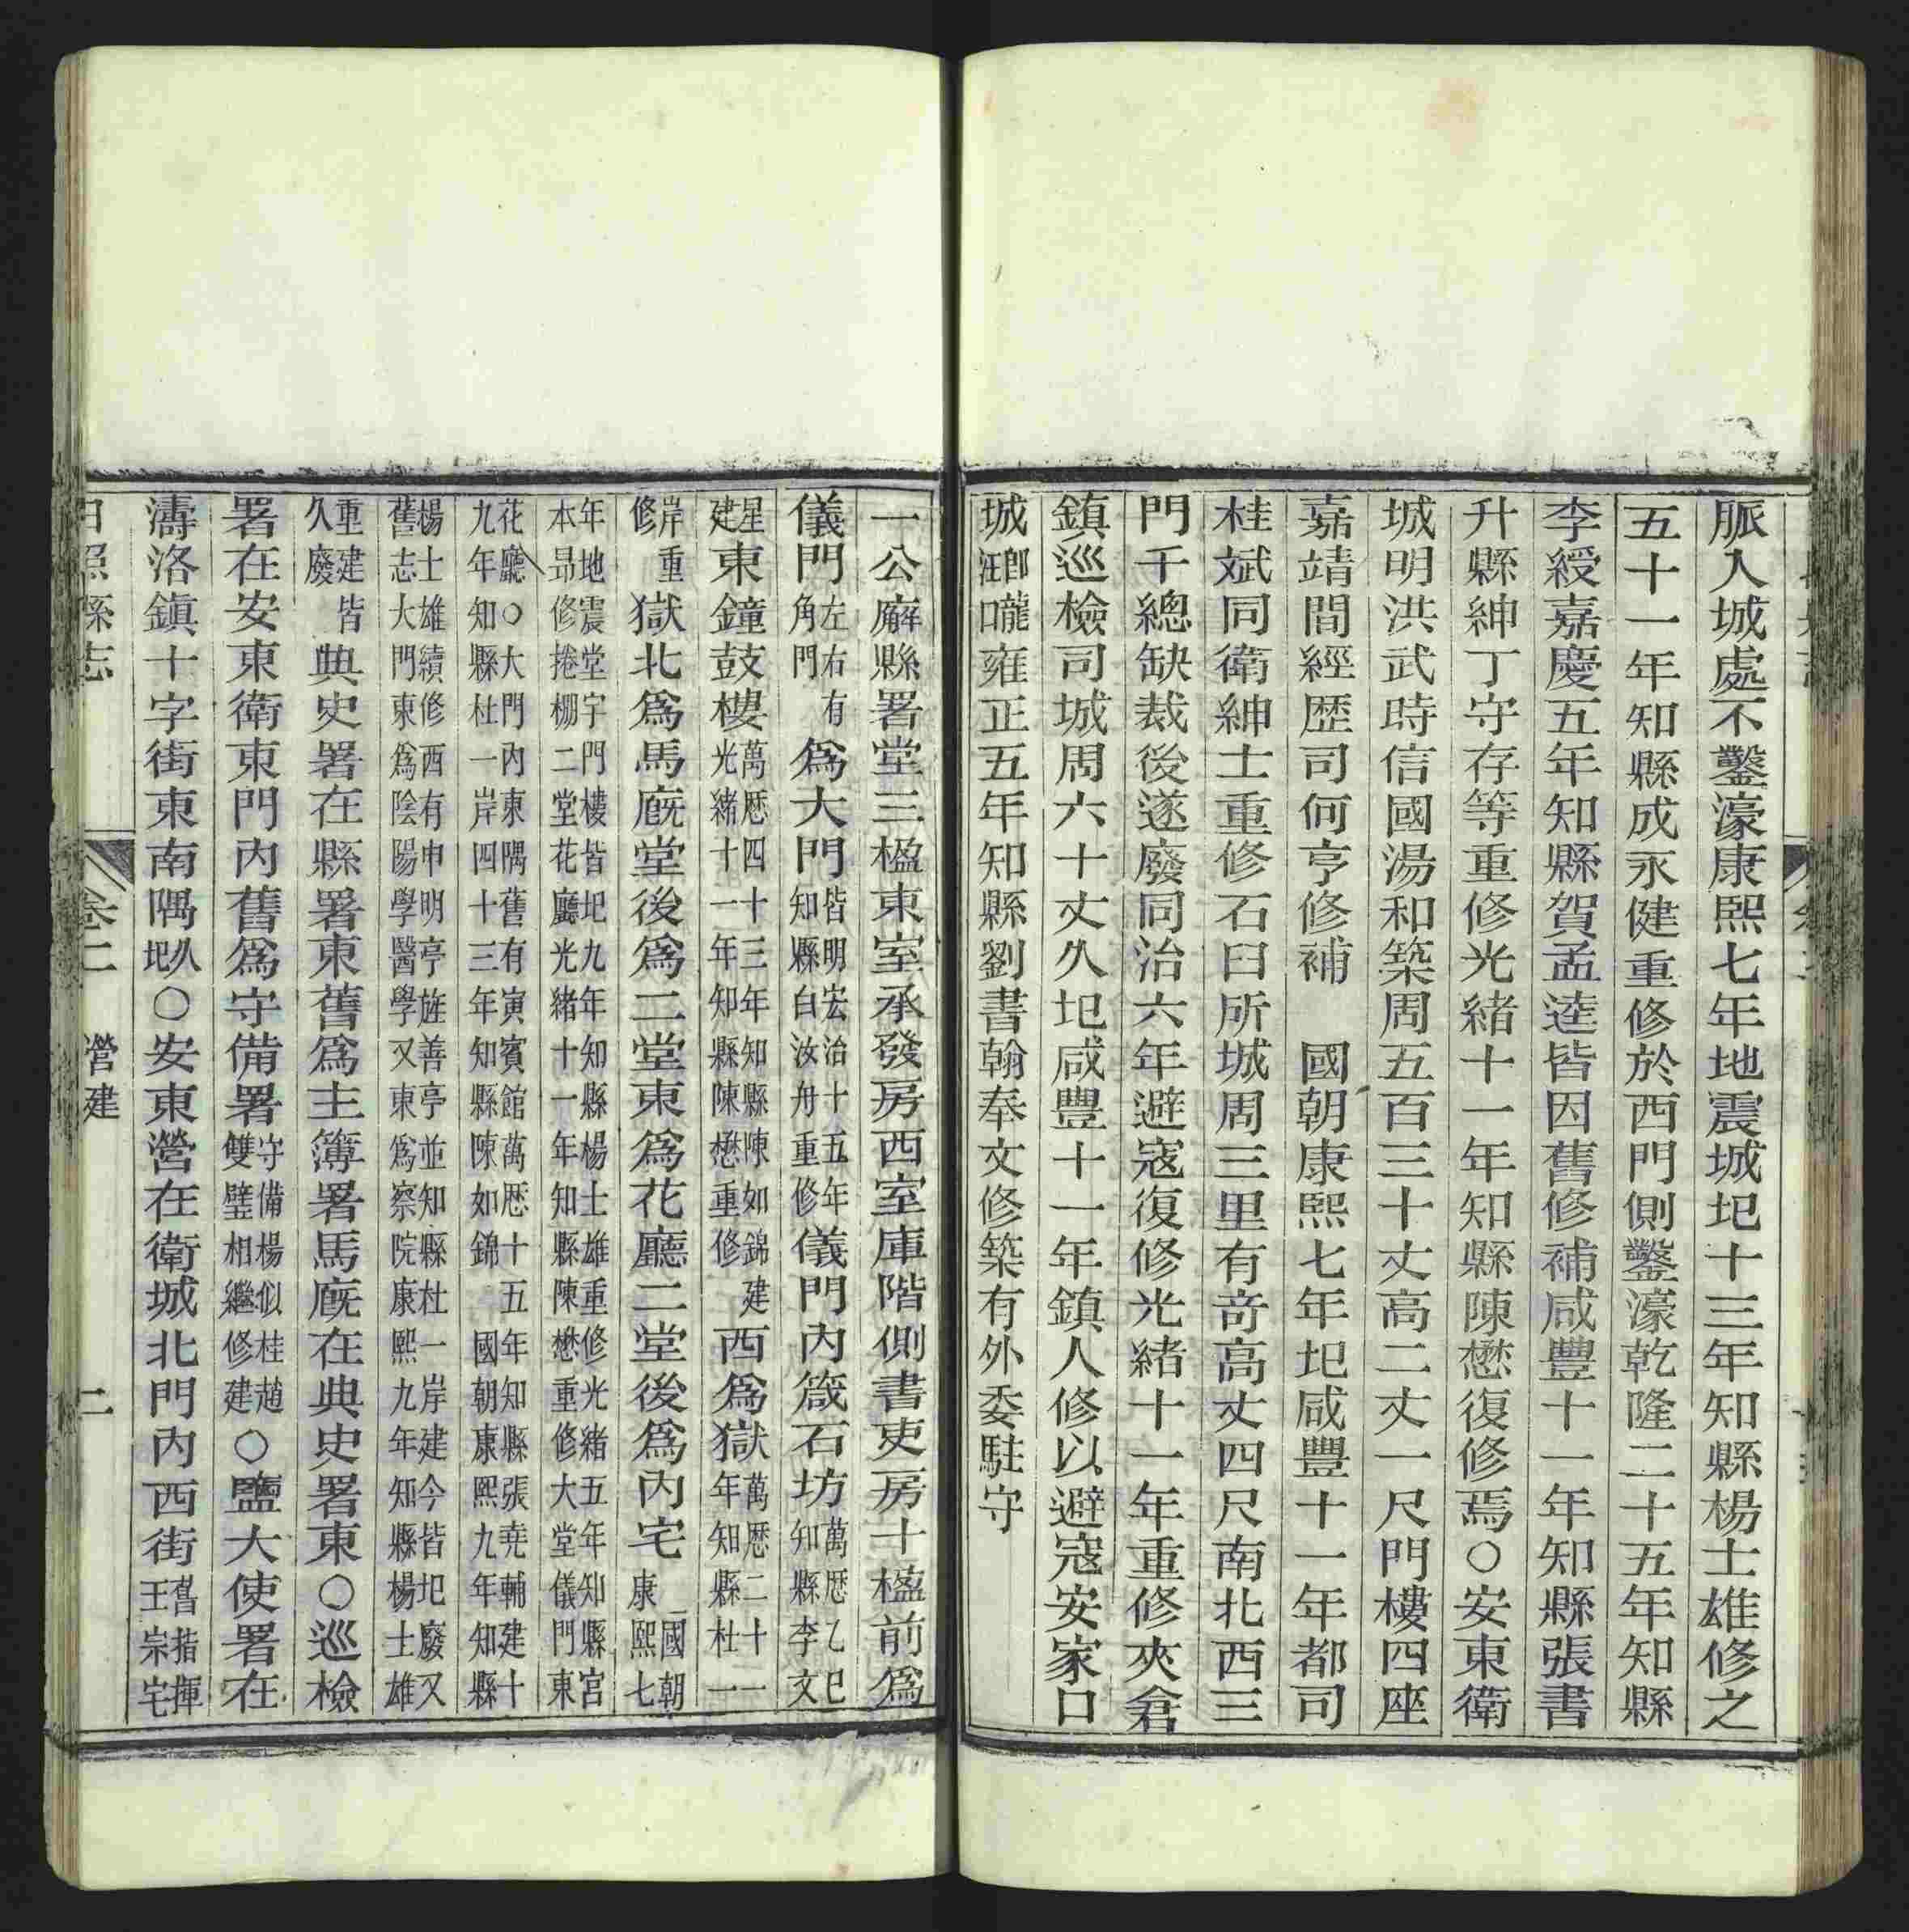 脈入城處不鑿濠康熙七年地震城圯十三年知縣楊士雄修之
五十一年知縣成永健重修於西門側鑿濠乾隆二十五年知縣
李綬嘉慶五年知縣賀孟逵皆因舊修補咸豐十一年知縣張書
升縣紳丁守存等重修光緒十一年知縣陳懋復修焉○安東衛
城明洪武時信國湯和築周五百三十丈高二丈一尺門樓四座
嘉靖間經歷司何亨修補 國朝康熙七年圯咸豐十一年都司
桂斌同衛紳士重修石臼所城周三里有奇高丈四尺南北西三
門千總缺裁後遂廢同治六年避寇復修光緒十一年重修夾倉
鎮巡檢司城周六十丈久圯咸豐十一年鎮人修以避寇安家口
城即龍汪口雍正五年知縣劉書翰奉文修築有外委駐守
一公廨縣署堂三楹東室承發房西室庫階側書吏房十楹前為
儀門左右有角門為大門皆明宏治十五年知縣白汝舟重修儀門內箴石坊萬歷乙巳知縣李文
星建東鐘鼓樓萬歷四十三年知縣陳如錦建光緒十一年知縣陳懋重修西為獄萬歷二十二年知縣杜一
岸重修獄北為馬廐堂後為二堂東為花廳二堂後為內宅國朝康熙七
年地震堂宇門樓皆圯九年知縣楊士雄重修光緒五年知縣宮
本昂修捲棚二堂花廳光緒十一年知縣陳懋重修大堂儀門東
花廳○大門內東隅舊有寅賓館萬歷十五年知縣張堯輔建十
九年知縣杜一岸四十三年知縣陳如錦國朝康熙九年知縣
楊士雄續修西有申明亭旌善亭並知縣杜一岸建今皆圯廢又
舊志大門東為陰陽學醫學又東為察院康熙九年知縣楊士雄
重建皆久廢典史署在縣署東舊為主簿署馬廐在典史署東○巡檢
署在安東衛東門內舊為守備署守備楊似桂趙雙璧相繼修建○鹽大使署在
濤洛鎮十字街東南隅久圯○安東營在衛城北門內西街舊指揮王宗宅
日照縣志
卷二
營建
二